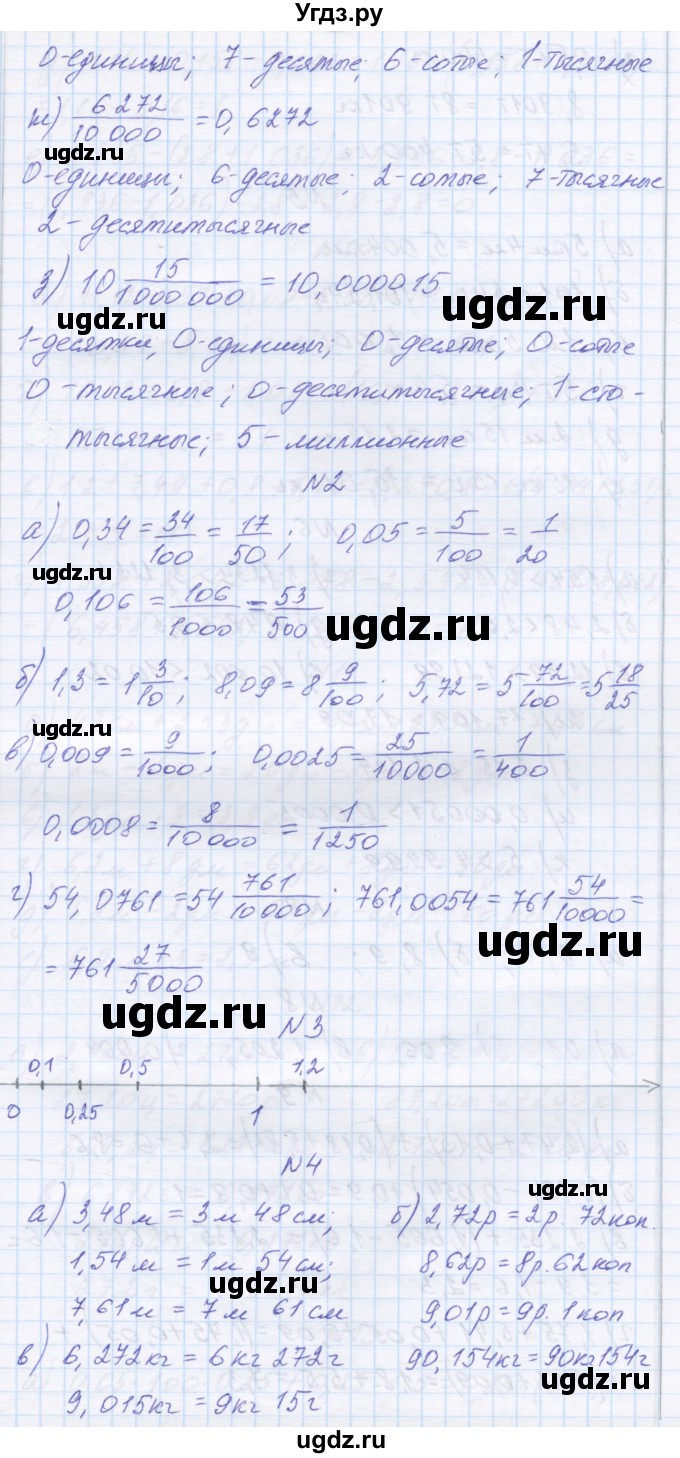 Угдз.ру
0-единицы; 7-десятые; 6-сотые; 1-тысячные
ж) 6272/10 000 = 0,6272
ugdz.ru
0-единицы; 6-десятые; 2-сотые; 7-тысячные
2-десятитысячные
з) 10 15/1000 000 = 10,000015
ugdz.ru ugdz.ru
1-десятки, 0-единицы; 0-десятые; 0-сотые
0-тысячные; 0-десятитысячные; 1-сто-
тысячные; 5-миллионные
N2
а) 0,34 = 34/100 = 17/50; 0,05 = 5/100 = 1/20
ugdz.ru
0,106 = 106/1000 = 53/500
ugdz.ru
б) 1,3 = 1 3/10; 8,09 = 8 9/100; 5,72 = 5 72/100 = 5 18/25
в) 0,009 = 9/1000; 0,0025 = 25/10000 = 1/400
0,0008 = 8/10 000 = 1/1250
г) 54,0761 = 54 761/10000; 761,0054 = 761 54/10000 =
ugdz.ru
= 761 27/5000
ugdz.ru
N3
0,1 0,5 1,2
0 0,25 1
N4
ugdz.ru
а) 3,48м = 3м 48см; б) 2,72р = 2р. 72коп.
1,54м = 1м 54см; 8,62р = 8р. 62коп
ugdz.ru
7,61м = 7м 61см 9,01р = 9р. 1коп
в) 6,272кг = 6кг 272г 90,154кг = 90кг154г
ugdz.ru
9,015кг = 9кг 15г
ugdz.ru